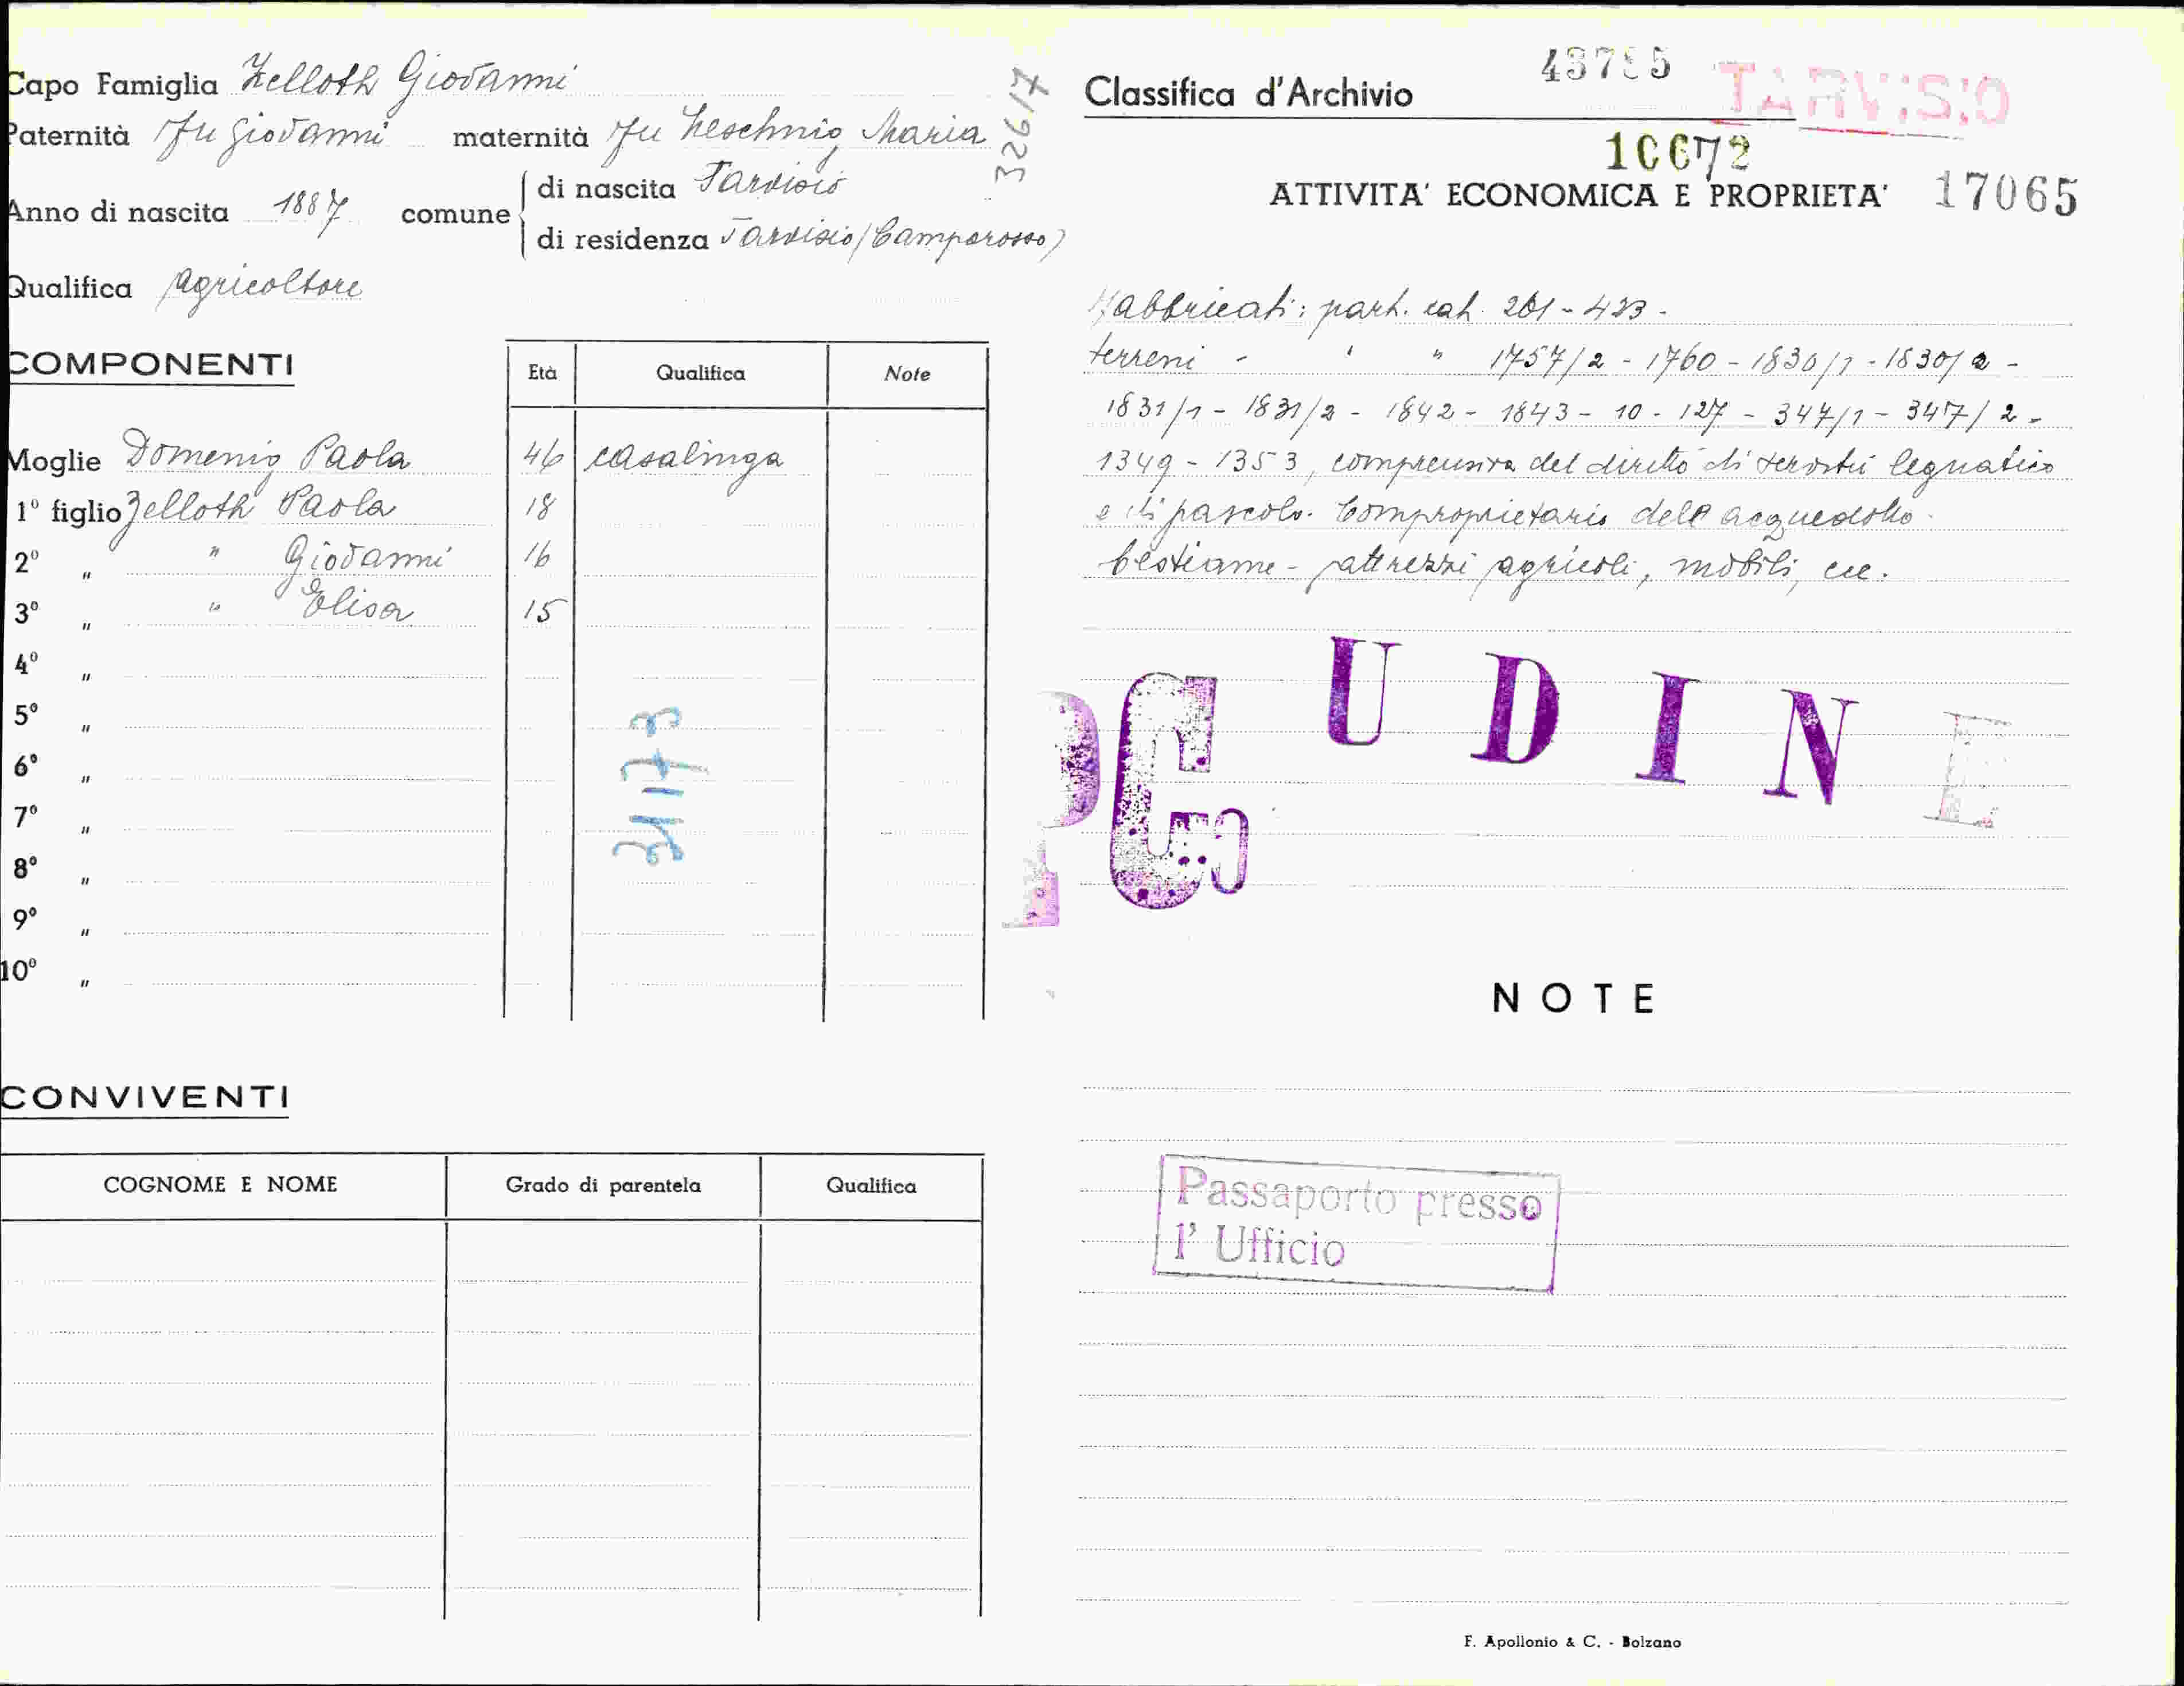 Capo Famiglia Zelloth Giovanni
Paternità fu Giovanni maternità fu Zeschnig Maria
32617
Anno di nascita 1887 comune di nascita Tarvisio
di residenza Tarvisio (Camporosso)
Qualifica Agricoltore
COMPONENTI
Età Qualifica Note
Moglie Domenig Paola 46 casalinga
1º figlio Zelloth Paola 18
2º " " Giovanni 16
3º " " Elisa 15
4º "
5º "
6º "
7º "
8º "
9º "
10º "
CONVIVENTI
COGNOME E NOME Grado di parentela Qualifica
Classifica d'Archivio
TARVISIO
10672
ATTIVITA' ECONOMICA E PROPRIETA' 17065
Fabbricati: part. cat. 201 - 423 -
terreni - " " 1757/2 - 1760 - 1830/1 - 1830/2 -
1831/1 - 1831/2 - 1842 - 1843 - 10 - 127 - 347/1 - 347/2 -
1349 - 1353, comprensiva del diritto di servitù legnatico
e di pascolo. Comproprietario dell'acquedotto.
bestiame - attrezzi agricoli, mobili, ecc.
UDINE
PC
NOTE
Passaporto presso
l' Ufficio
F. Apollonio & C. - Bolzano